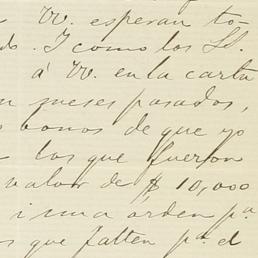 VV. esperan to-
do. I como los SS.
á VV. en la carta
meses pasados,
bonos de que yo
los que fueron
valor de $ 10,000
i una orden pª
que falten pª el